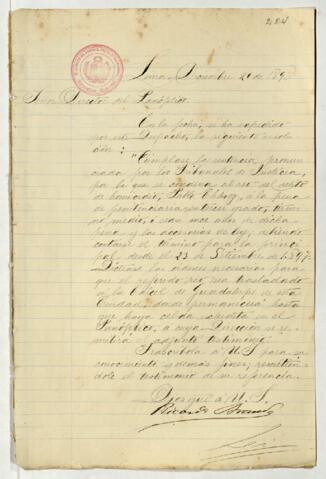 284
Lima, Diciembre 20 de 189
Señor Director del Panóptico.
En la fecha, se ha expedido
por este Despacho, la siguiente resolu-
ción:
"Cúmplase la sentencia pronun-
ciada por los Tribunales de Justicia,
por la que se condena al reo del delito
de homicidio, Pablo Chávez, a la pena
de penitenciaría en tercer grado, térmi-
no medio, ó sean once años de dicha
pena y las accesorias de ley, debiendo
contarse el término para la princi-
pal desde el 23 de Setiembre de 1897.
Díctese las órdenes necesarias para
que el referido reo sea trasladado
á la Cárcel de Guadalupe de esta
Ciudad, donde permanecerá hasta
que haya celda expedita en el
Panóptico, á cuya Dirección se re-
mitirá el adjunto testimonio."
Trascríbola á US. para su
conocimiento y demás fines, remitién-
dole el testimonio de su referencia.
Dios gue á U.S.
Ricardo